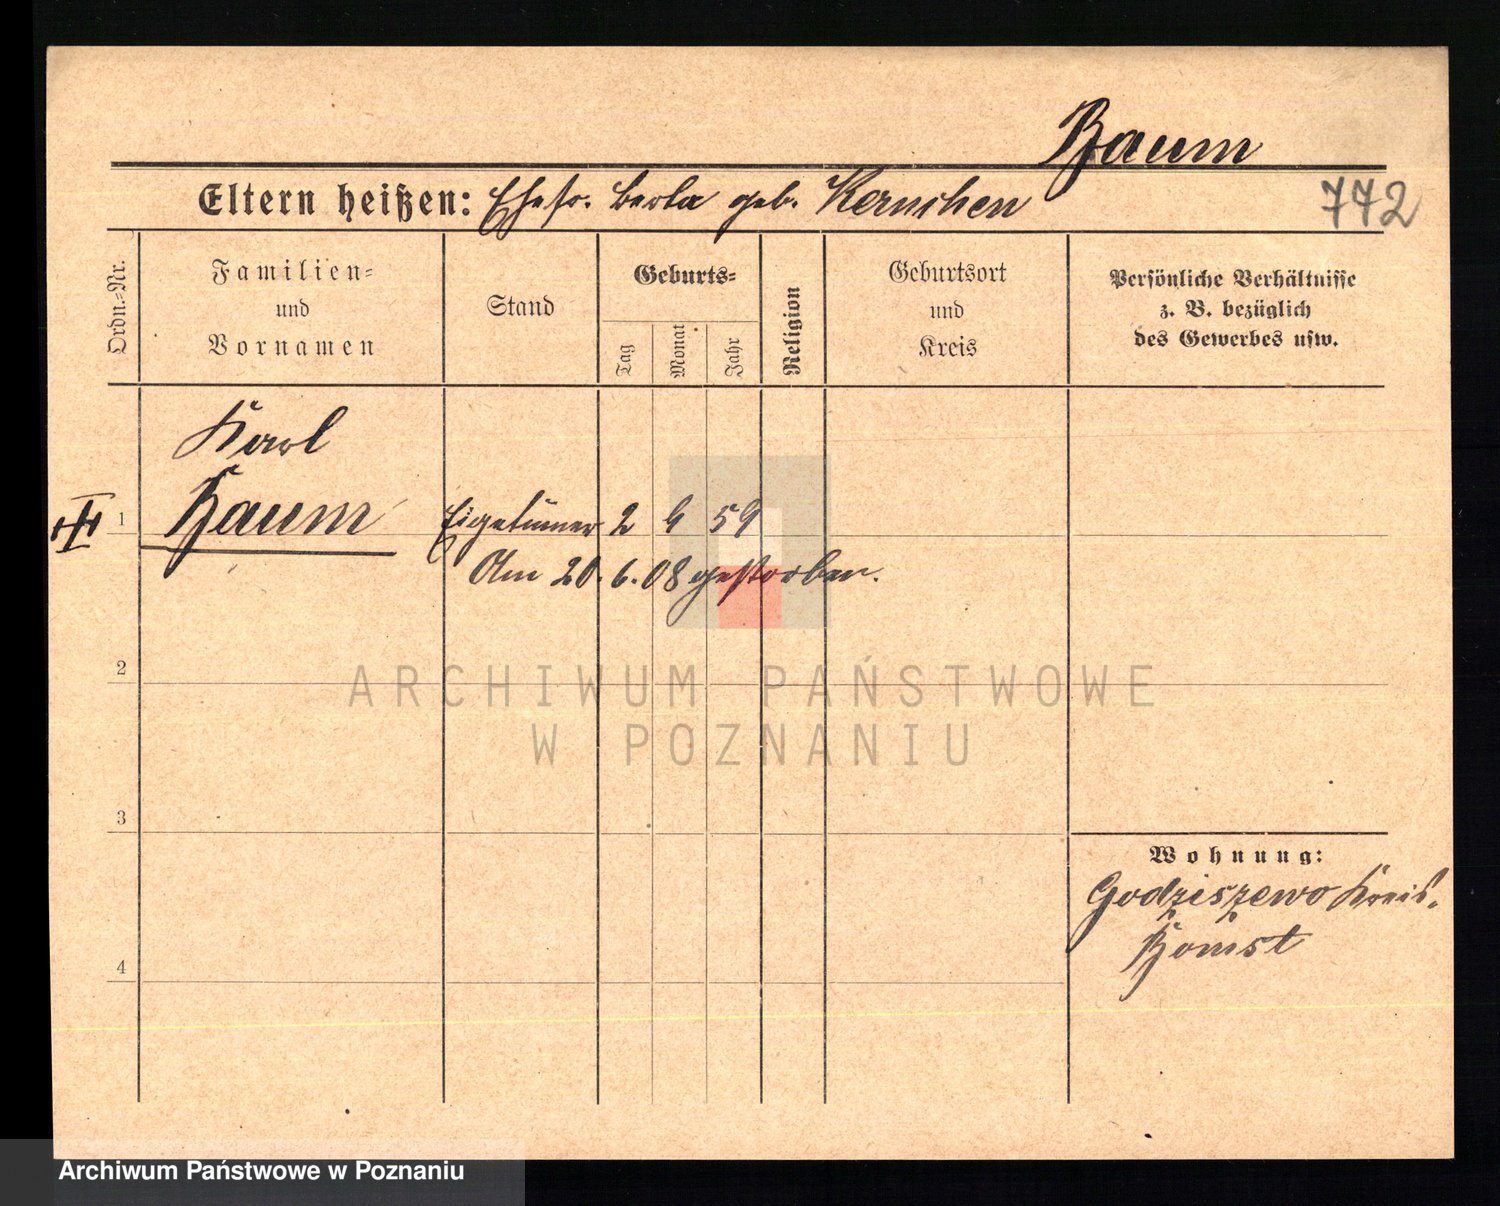 Baum
Eltern heißen: Ehefr. Berta geb. Kernchen
772
Ordn.-Nr.
Familien-
und
Vornamen
Stand
Geburts-
Tag
Monat
Jahr
Religion
Geburtsort
und
Kreis
Persönliche Verhältnisse
z. B. bezüglich
des Gewerbes usw.
Karl
1 Baum Eigetümer 2 9 59
Am 20. 6. 08 gestorben.
2
ARCHIWUM PAŃSTWOWE
W POZNANIU
3
Wohnung:
Godziszewo Kreis.
Bomst
4
Archiwum Państwowe w Poznaniu